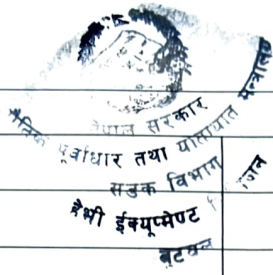 नेपाल सरकार
भौतिक पूर्वाधार तथा यातायात मन्त्रालय
सडक विभाग
हेभी ईक्यूपमेण्ट डिभिजन
बुटवल